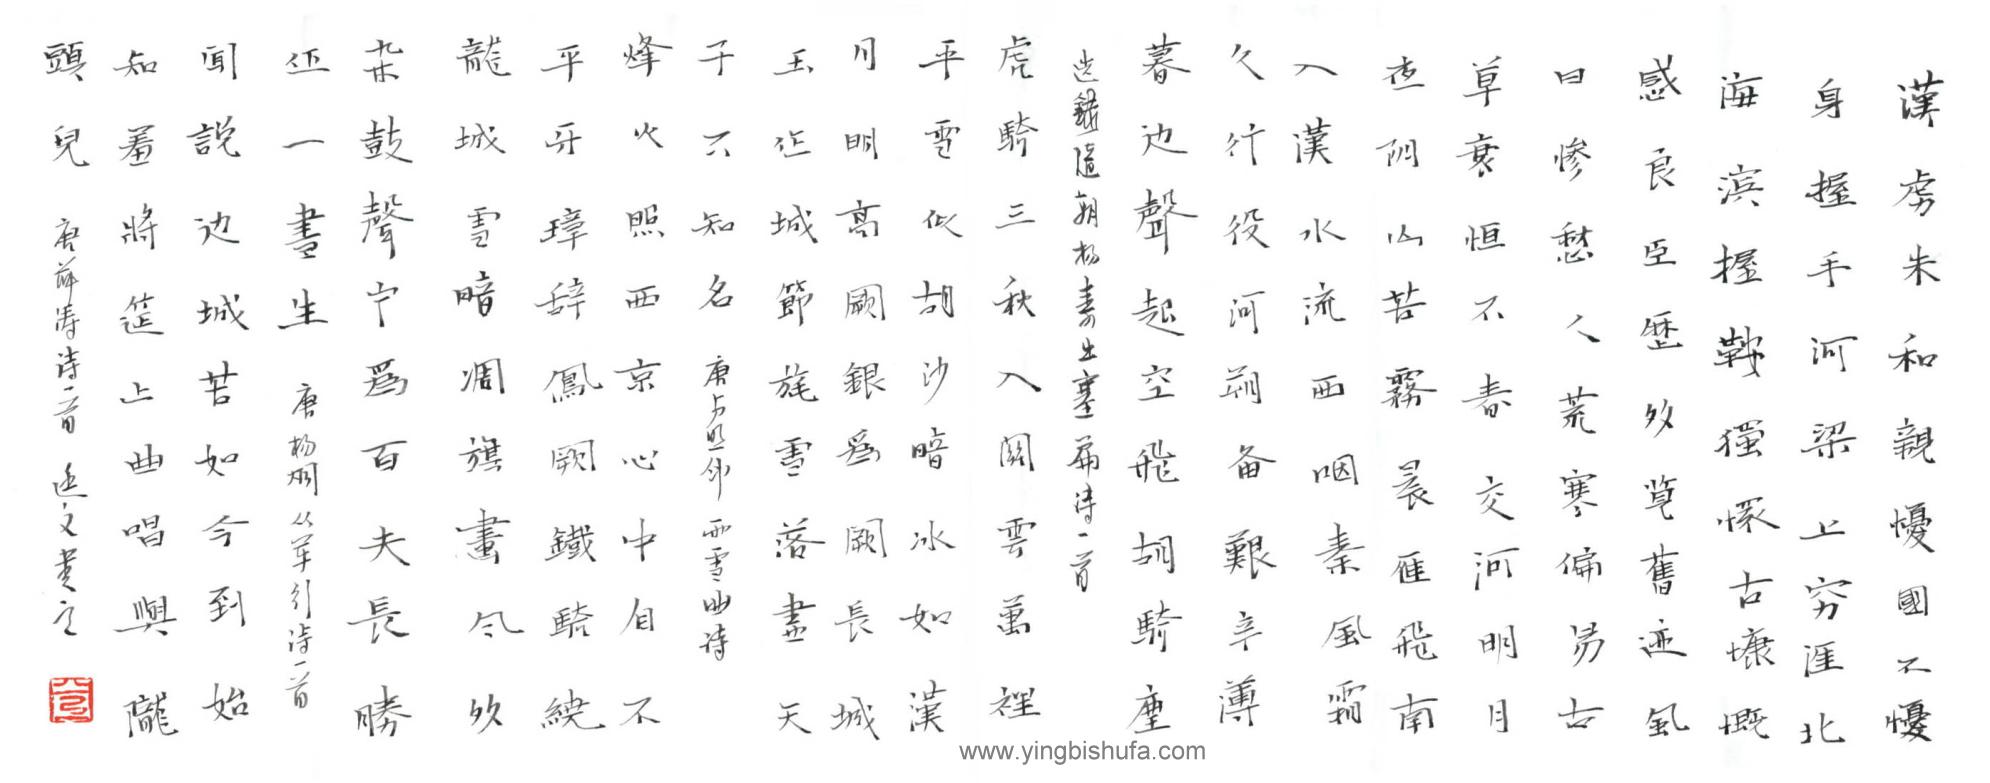 漢虏未和親懮國不懮
身握手河梁上穷涯北
海滨握鞍獨懷古慷慨
感良臣歷多览舊迹風
日惨愁人荒寒偏易古
草衰恒不春交河明月
夜阴山苦霧晨雁飛南
入漢水流西咽秦風霜
久行役河朔备艱辛薄
暮边聲起空飛胡騎塵
选録隋朝杨素出塞篇诗一首
虎騎三秋入關雲萬裡
平雪似胡沙暗冰如漢
月明高阙銀為阙長城
玉作城節旄雪落盡天
子不知名 唐卢照邻雨雪曲诗
烽火照西京心中自不
平牙璋辞鳳阙鐵騎繞
龍城雪暗凋旗畫風多
杂鼓聲宁為百夫長勝
作一書生 唐杨炯从军行诗一首
闻说边城苦如今到始
知羞將筵上曲唱與隴
頭兒 唐薛涛诗一首 文書之
www.yingbishufa.com